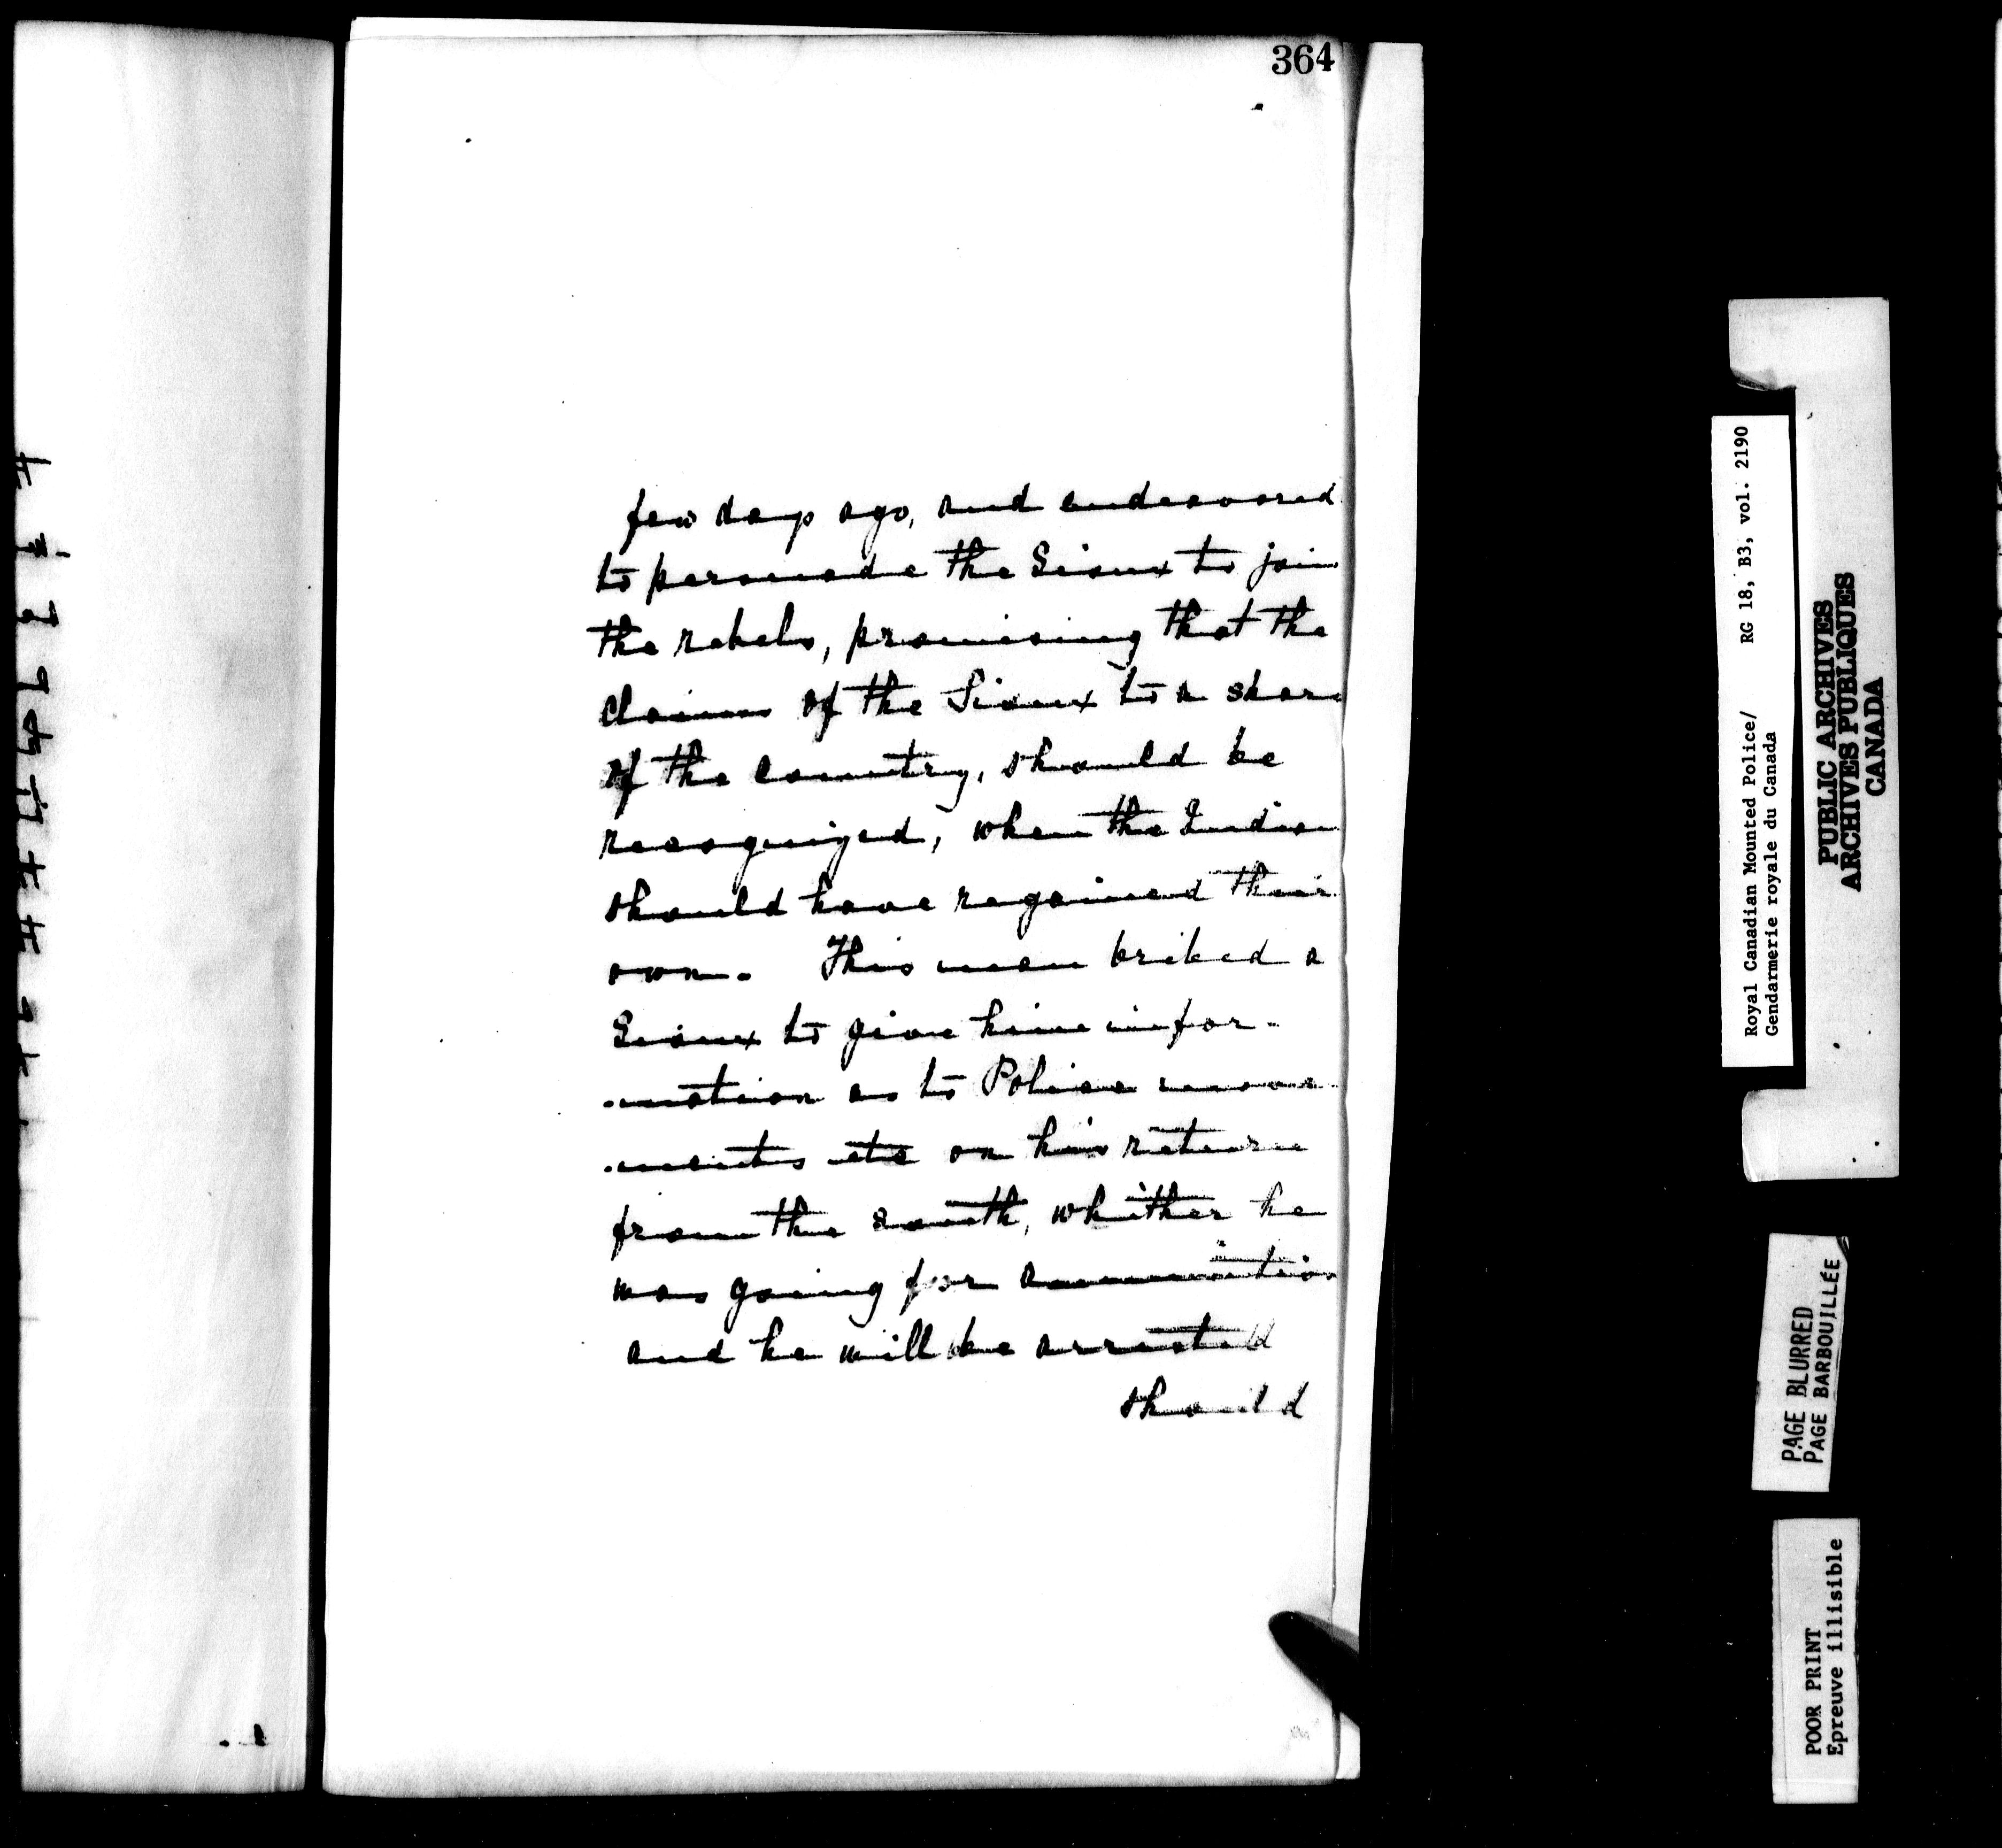 364
few days ago, and endeavored
to persuade the Sioux to join
the rebels, promising that the
claims of the Sioux to a share
of the country, should be
recognized, when the Indian
should have regained their
own. This man bribed a
Sioux to give him infor-
-mation as to Police move-
-ments etc on his return
from the south, whither he
was going for ammunition
and he will be arrested
should
Royal Canadian Mounted Police/ RG 18, B3, vol. 2190
Gendarmerie royale du Canada
PUBLIC ARCHIVES
ARCHIVES PUBLIQUES
CANADA
PAGE BLURRED
PAGE BARBOUILLÉE
POOR PRINT
Epreuve illisible